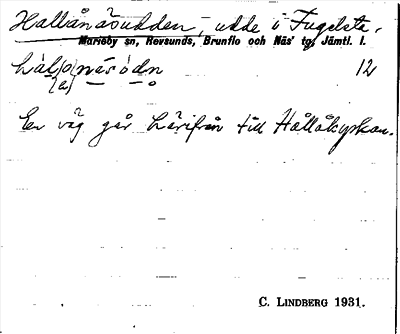 Hallånäsudden, udde i Fugelsta,
Marieby sn, Revsunds, Brunflo och Näs' tg, Jämtl. l.
12
En väg går härifrån till Hållåkyrkan.
C. LINDBERG 1931.